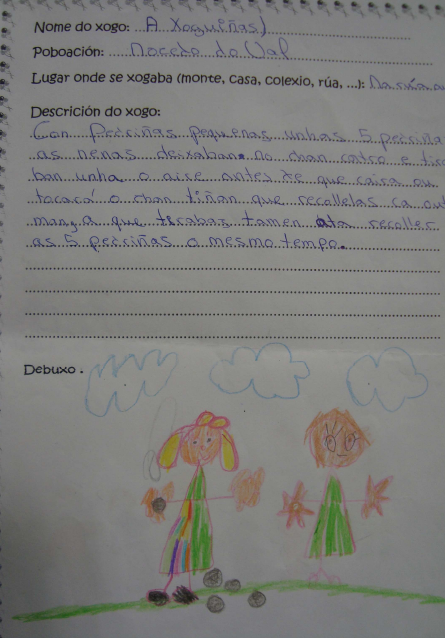 Nome do xogo: A Xogueñas)
Poboación: Nocedo do Val
Lugar onde se xogaba (monte, casa, colexio, rúa, ...): Na rúa
Descrición do xogo:
Con Pedriñas pequenas unhas 5 pedriña
as nenas deixaban no chan catro e tira
ban unha o aire antes de que caira ou
tocara o chan tiñan que recollelas ca out
man a que tiraban tamen ata recoller
as 5 pedriñas o mesmo tempo.
Debuxo .